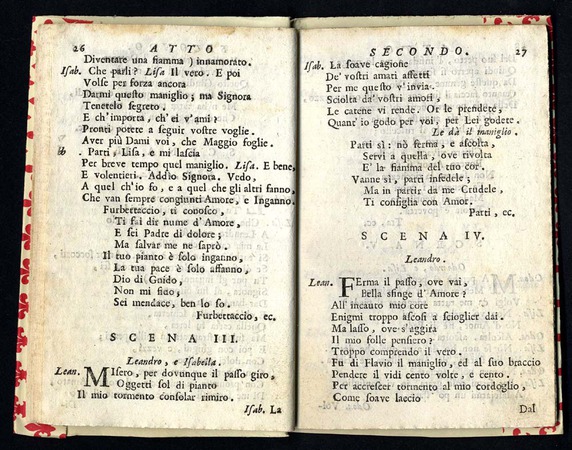 26 ATTO
Diventare una fiamma ) innamorato.
Isab. Che parli? Lisa Il vero. E poi
Volse per forza ancora
Darmi questo maniglio; ma Signora
Tenetelo segreto.
E ch'importa, ch'ei v'ami?
Pronti potete a seguir vostre voglie.
Aver più Dami voi, che Maggio foglie.
Parti, Lisa, e mi lascia
Per breve tempo quel maniglio. Lisa. E bene,
E volentieri. Addio Signora. Vedo,
A quel ch'io fo, e a quel che gli altri fanno,
Che van sempre congiunti Amore, e Inganno.
Furbettaccio, ti conosco,
Ti fai dir nume d'Amore,
E sei Padre di dolore;
Ma salvar me ne saprò.
Il tuo pianto è solo inganno,
La tua pace è solo affanno,
Dio di Guido,
Non mi fido,
Sei mendace, ben lo so.
Furbettaccio, ec.
SCENA III.
Leandro, e Isabella.
Lean. MIsero, per dovunque il passo giro,
Oggetti sol di pianto
Il mio tormento consolar rimiro.
Isab. La
SECONDO. 27
Isab. La soave cagione
De' vostri amati affetti
Per me questo v'invia.
Sciolta da' vostri amori,
Le catene vi rende. Or le prendete,
Quant'io godo per voi, per Lei godete.
Le dà il maniglio.
Parti sì: nò ferma, e ascolta,
Servi a quella, ove rivolta
E' la fiamma del tuo cor.
Vanne sì, parti infedele;
Ma in partir da me Crudele,
Ti consiglia con Amor.
Parti, ec.
SCENA IV.
Leandro.
Lean. FErma il passo, ove vai,
Bella sfinge d'Amore?
All'incauto mio core
Enigmi troppo ascosi a scioglier dai.
Ma lasso, ove s'aggira
Il mio folle pensiero?
Troppo comprendo il vero.
Fu di Flavio il maniglio, ed al suo braccio
Pendere il vidi cento volte, e cento.
Per accrescer tormento al mio cordoglio,
Come soave laccio
Dal